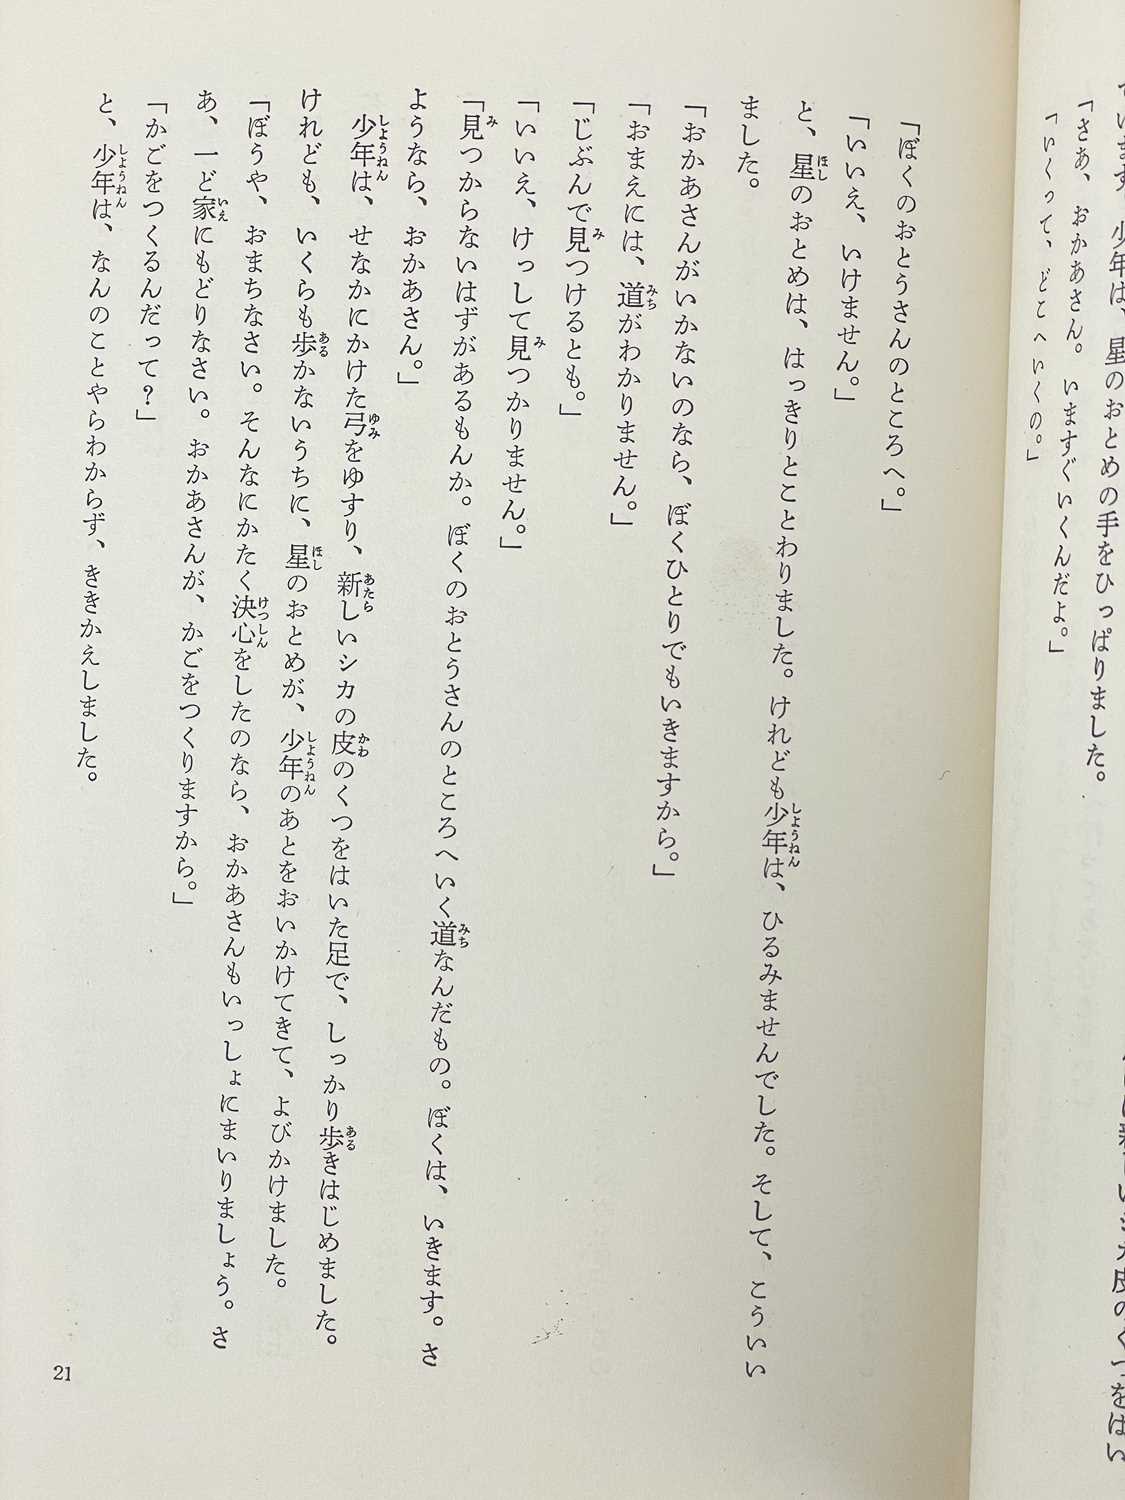 ています。少年は、星のおとめの手をひっぱりました。
「さあ、おかあさん。いますぐいくんだよ。」
「いくって、どこへいくの。」
新しいシカ皮のくつをはい
「ぼくのおとうさんのところへ。」
「いいえ、いけません。」
と、星のおとめは、はっきりとことわりました。けれども少年は、ひるみませんでした。そして、こういい
ました。
「おかあさんがいかないのなら、ぼくひとりでもいきますから。」
「おまえには、道がわかりません。」
「じぶんで見つけるとも。」
「いいえ、けっして見つかりません。」
「見つからないはずがあるもんか。ぼくのおとうさんのところへいく道なんだもの。ぼくは、いきます。さ
ようなら、おかあさん。」
少年は、せなかにかけた弓をゆすり、新しいシカの皮のくつをはいた足で、しっかり歩きはじめました。
けれども、いくらも歩かないうちに、星のおとめが、少年のあとをおいかけてきて、よびかけました。
「ぼうや、おまちなさい。そんなにかたく決心をしたのなら、おかあさんもいっしょにまいりましょう。さ
あ、一ど家にもどりなさい。おかあさんが、かごをつくりますから。」
「かごをつくるんだって？」
と、少年は、なんのことやらわからず、ききかえしました。
21